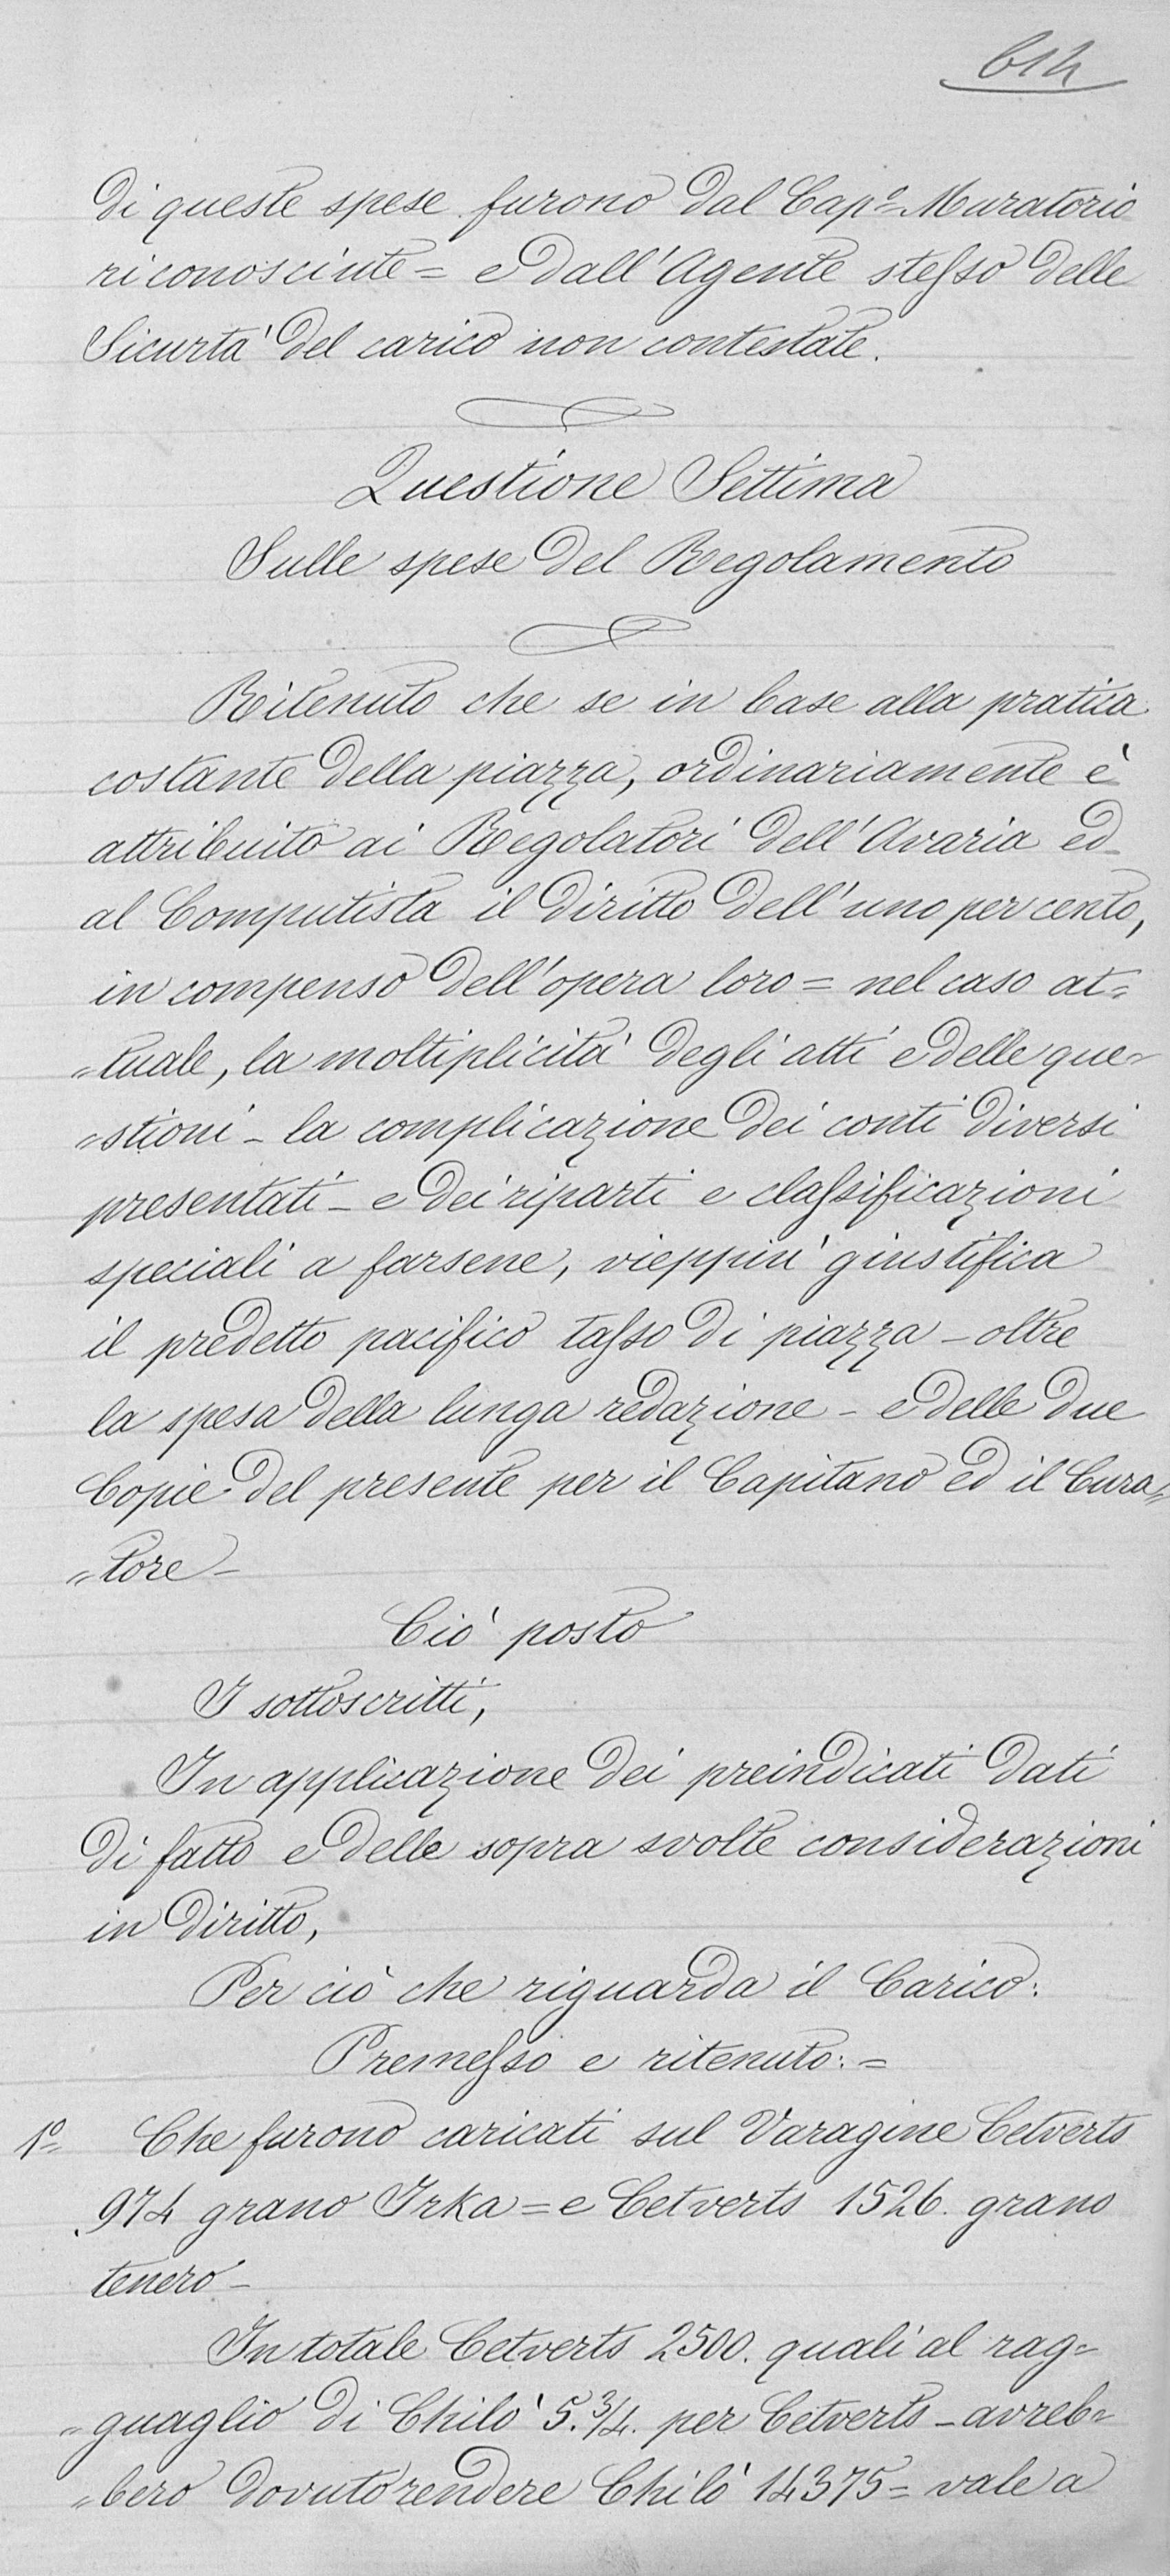 614
di queste spese furono dal Cap.º Muratorio
riconosciute = e dall'Agente stesso delle
Sicurtà del carico non contestate.
Questione Settima
Sulle spese del Regolamento
Ritenuto che se in base alla pratica
costante della piazza, ordinariamente è
attribuito ai Regolatori dell'Avaria ed
al Computista il diritto dell'uno per cento,
in compenso dell'opera loro = nel caso at=
=tuale, la moltiplicità degli atti e delle que=
=stioni - la complicazione dei conti diversi
presentati - e dei riparti e classificazioni
speciali a farsene, vieppiù giustifica
il predetto pacifico tasso di piazza - oltre
la spesa della lunga redazione - e delle due
Copie del presente per il Capitano ed il Cura=
=tore -
Ciò posto
I sottoscritti,
In applicazione dei preindicati dati
di fatto e delle sopra svolte considerazioni
in diritto,
Per ciò che riguarda il Carico:
Premesso e ritenuto: =
1º= Che furono caricati sul Varagine Cetverts
974 grano Irka = e Cetverts 1526. grano
tenero -
In totale Cetverts 2500. quali al rag=
=guaglio di Chilò 5.3/4. per Cetverts - avreb=
=bero dovuto rendere Chilò 14375 = vale a